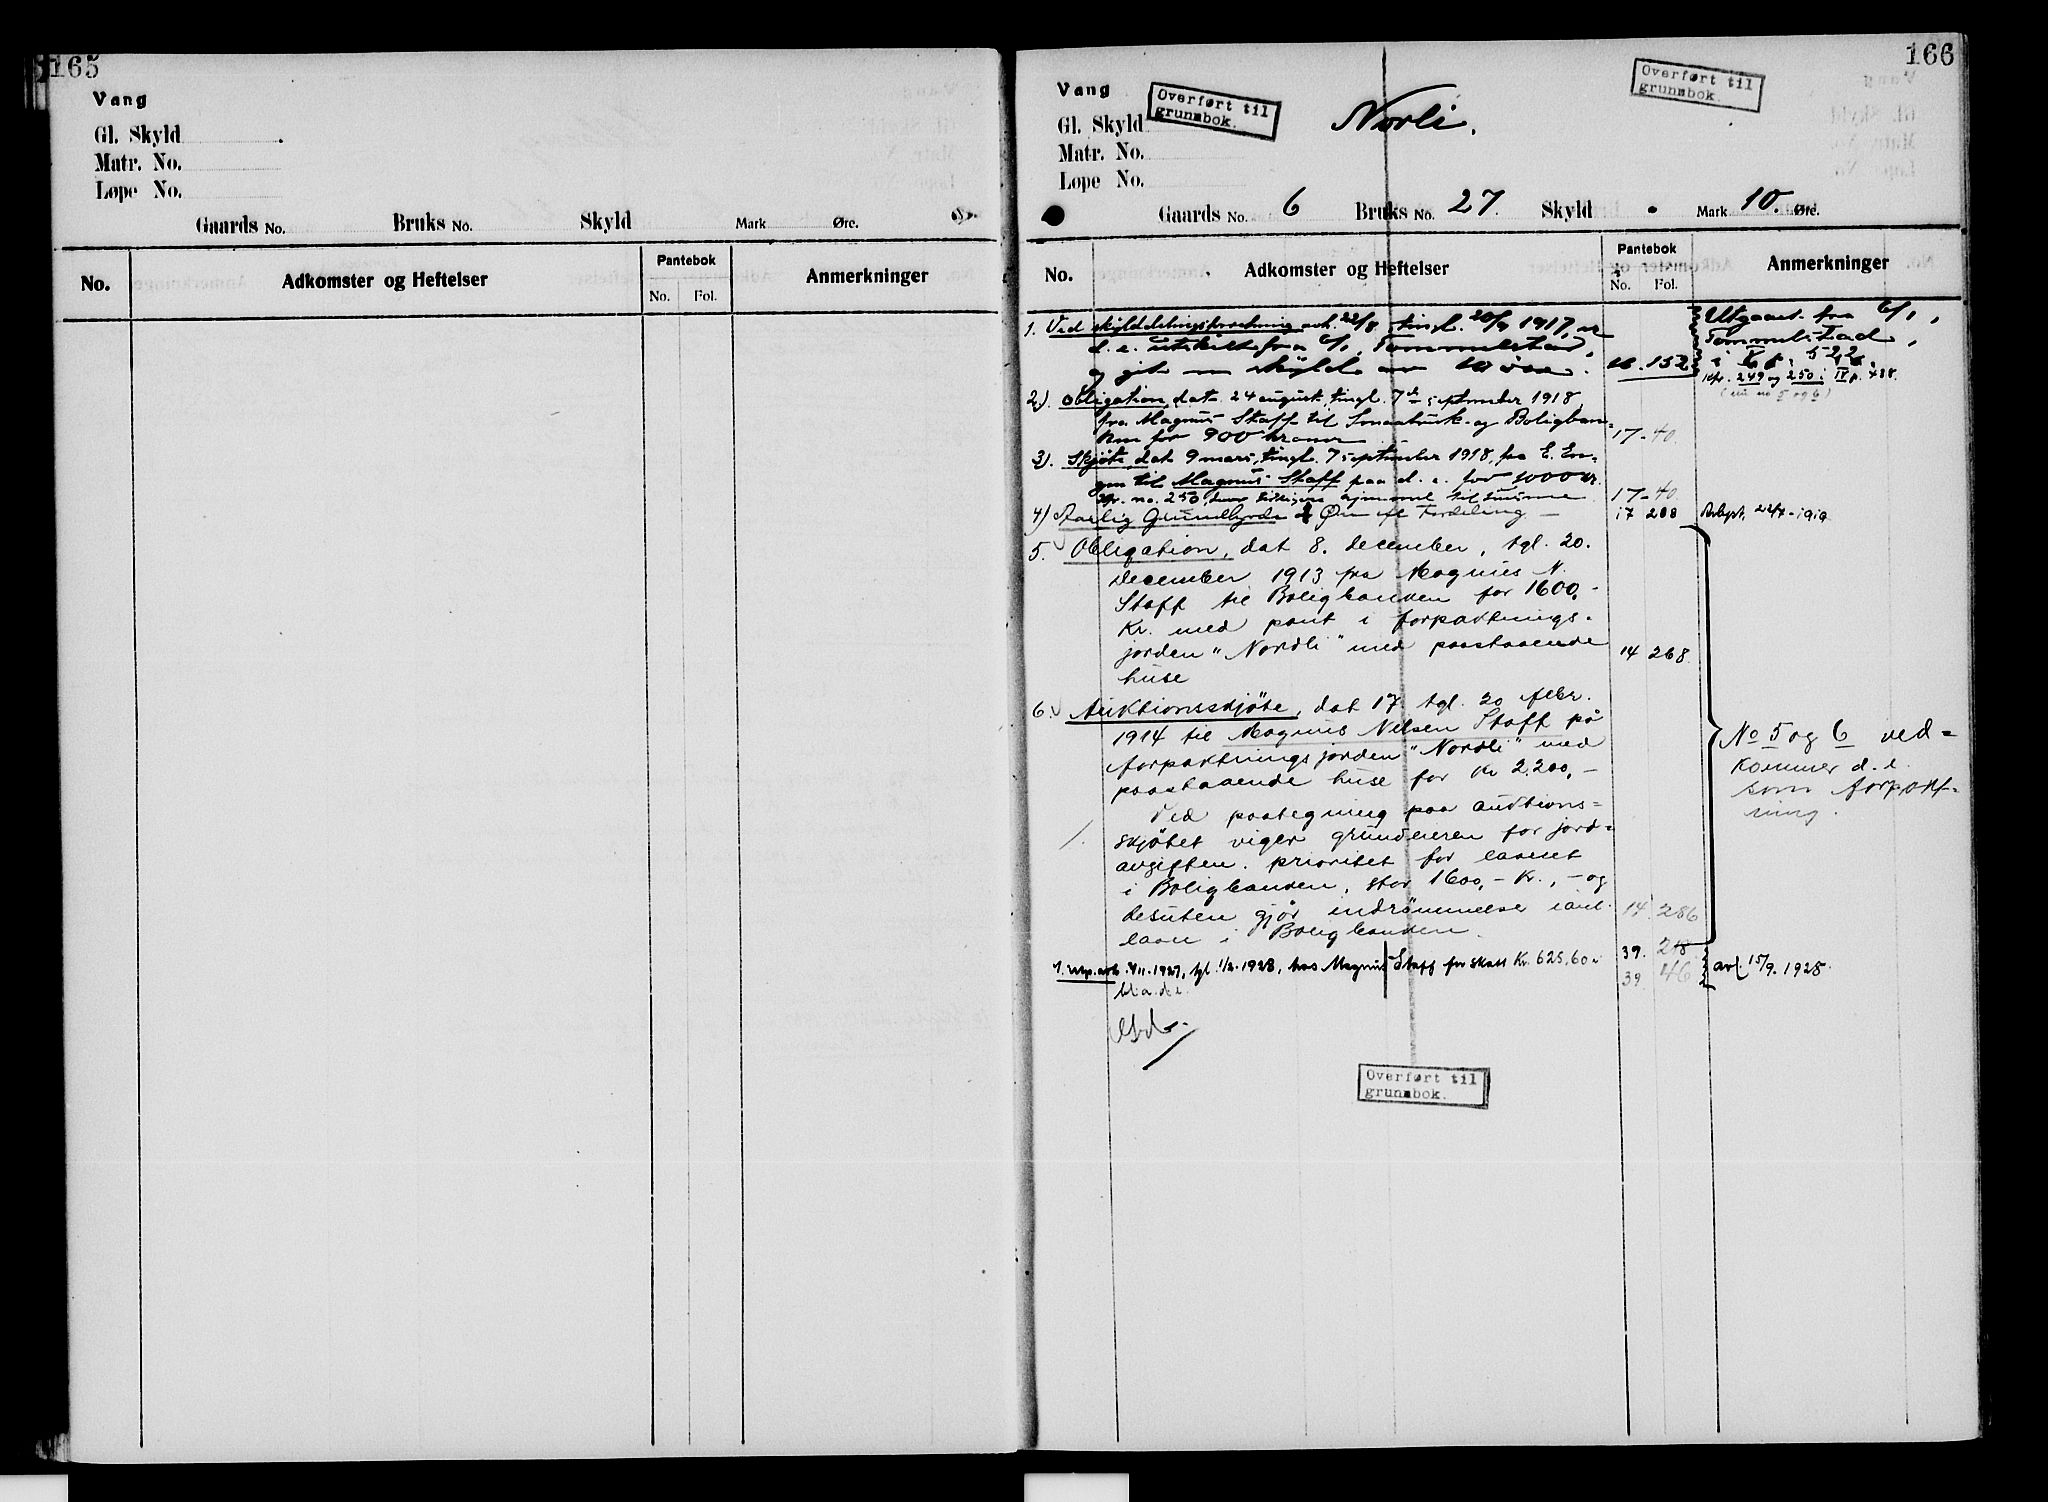 165
Vang
Gl. Skyld
Matr. No.
Løpe No.
Gaards No. Bruks No. Skyld Mark Øre.
No. Adkomster og Heftelser Pantebok No. Fol. Anmerkninger
166
Vang
Overført til
grunnbok.
Overført til
grunnbok.
Norli.
Gl. Skyld
Matr. No.
Løpe No.
Gaards No. 6 Bruks No. 27. Skyld Mark 10. Øre.
No. Adkomster og Heftelser Pantebok No. Fol. Anmerkninger
1. Ved skylddelingsforretning avh. 22/8 tingl. 20/9 1917, er
d. e. utskilt fra 6/1, Tommelstad,
og git en skyld av 10 øre. 16. 152
Utgaaet fra 6/1,
Tommelstad,
i 522.
Kfr. 249 og 250 i IV p. 488.
(nu no 5 og 6)
2). Obligation, dat. 24 august, tingl. 7de september 1918
fra Magnus Staff til Smaabruk- og Boligban-
ken for 900 kroner 17 - 40.
3). Skjøte, dat 9 mars, tingl. 7 september 1918, fra E. En-
gen til Magnus Staff paa d. e. for 1000 kr.
Kfr. no. 250 17 - 40.
4) Aarlig Grundbyrde Øre efl Fordeling — 17 208
5. Obligation, dat 8. december, tgl. 20.
december 1913 fra Magnus N.
Staff til Boligbanken for 1600,-
Kr. med pant i forpaktnings-
jorden "Nordli" med paastaaende
huse 14 268.
6. Auktionsskjöte, dat 17. tgl. 20 febr.
1914 til Magnus Nilsen Staff på
forpaktningsjorden "Nordli" med
paastaaende huse for Kr 2.200,-
Ved paategning paa auktions-
skjötet viger grundeieren for jord-
avgiften prioritet for laanet
i Boligbanken, stor 1600,- Kr., - og
desuten gjör indrömmelse
laan i Boligbanken. 14 286
No 5 og 6 ved-
kommer d. e.
som forpakt-
ning.
7. Utp. avh. 4/11-1927, tgl. 1/2-1928, hos Magnus Staff for skatt Kr. 625,60 39. 28
bl. a. d. e. 39. 46
avl. 15/9-1928.
Overført til
grunnbok.